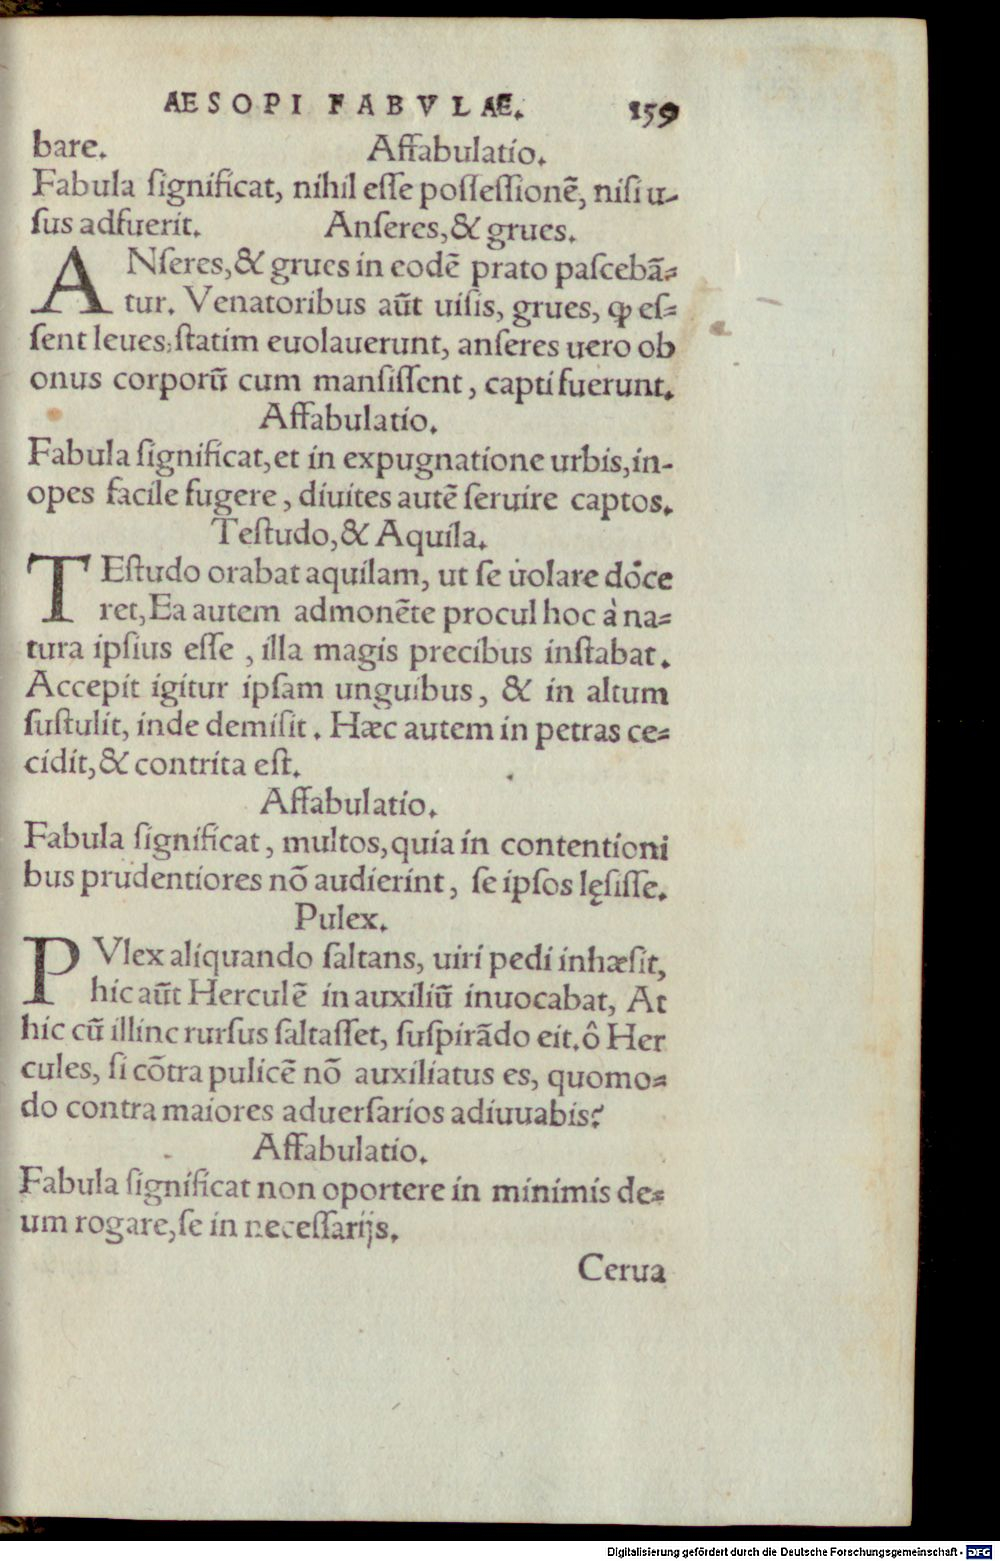 AESOPI FABVLAE. 159
bare. Affabulatio.
Fabula ſignificat, nihil eſſe poſſeſſionē, niſi u-
ſus adfuerit. Anſeres,& grues.
ANſeres,& grues in eodē prato paſcebā-
tur. Venatoribus aūt uiſis, grues, ꝙ eſ-
ſent leues:ſtatim euolauerunt, anſeres uero ob
onus corporū cum manſiſſent, capti fuerunt.
Affabulatio.
Fabula ſignificat,et in expugnatione urbis,in-
opes facile fugere, diuites autē ſeruire captos.
Teſtudo,& Aquila.
TEſtudo orabat aquilam, ut ſe uolare dōce
ret,Ea autem admonēte procul hoc à na-
tura ipſius eſſe , illa magis precibus inſtabat.
Accepit igitur ipſam unguibus, & in altum
ſuſtulit, inde demiſit. Hæc autem in petras ce-
cidit,& contrita eſt.
Affabulatio.
Fabula ſignificat, multos,quia in contentioni
bus prudentiores nō audierint, ſe ipſos lęſiſſe.
Pulex.
PVlex aliquando ſaltans, uiri pedi inhæſit,
hic aūt Herculē in auxiliū inuocabat, At
hic cū illinc rurſus ſaltaſſet, ſuſpirādo eit.ô Her
cules, ſi cōtra pulicē nō auxiliatus es, quomo-
do contra maiores aduerſarios adiuuabis?
Affabulatio.
Fabula ſignificat non oportere in minimis de-
um rogare,ſe in neceſſarijs.
Cerua
Digitalisierung gefördert durch die Deutsche Forschungsgemeinschaft - DFG